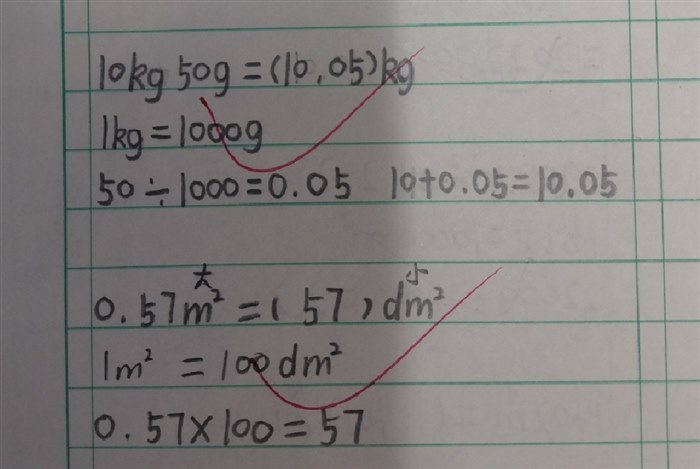 10kg 50g=(10.05)kg
1kg=1000g
50÷1000=0.05 10+0.05=10.05
大 小
0.57m²=(57)dm²
1m²=100dm²
0.57×100=57